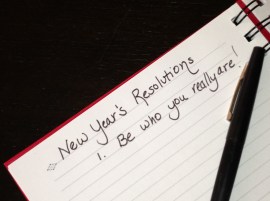 New Year's Resolutions
1. Be who you really are!